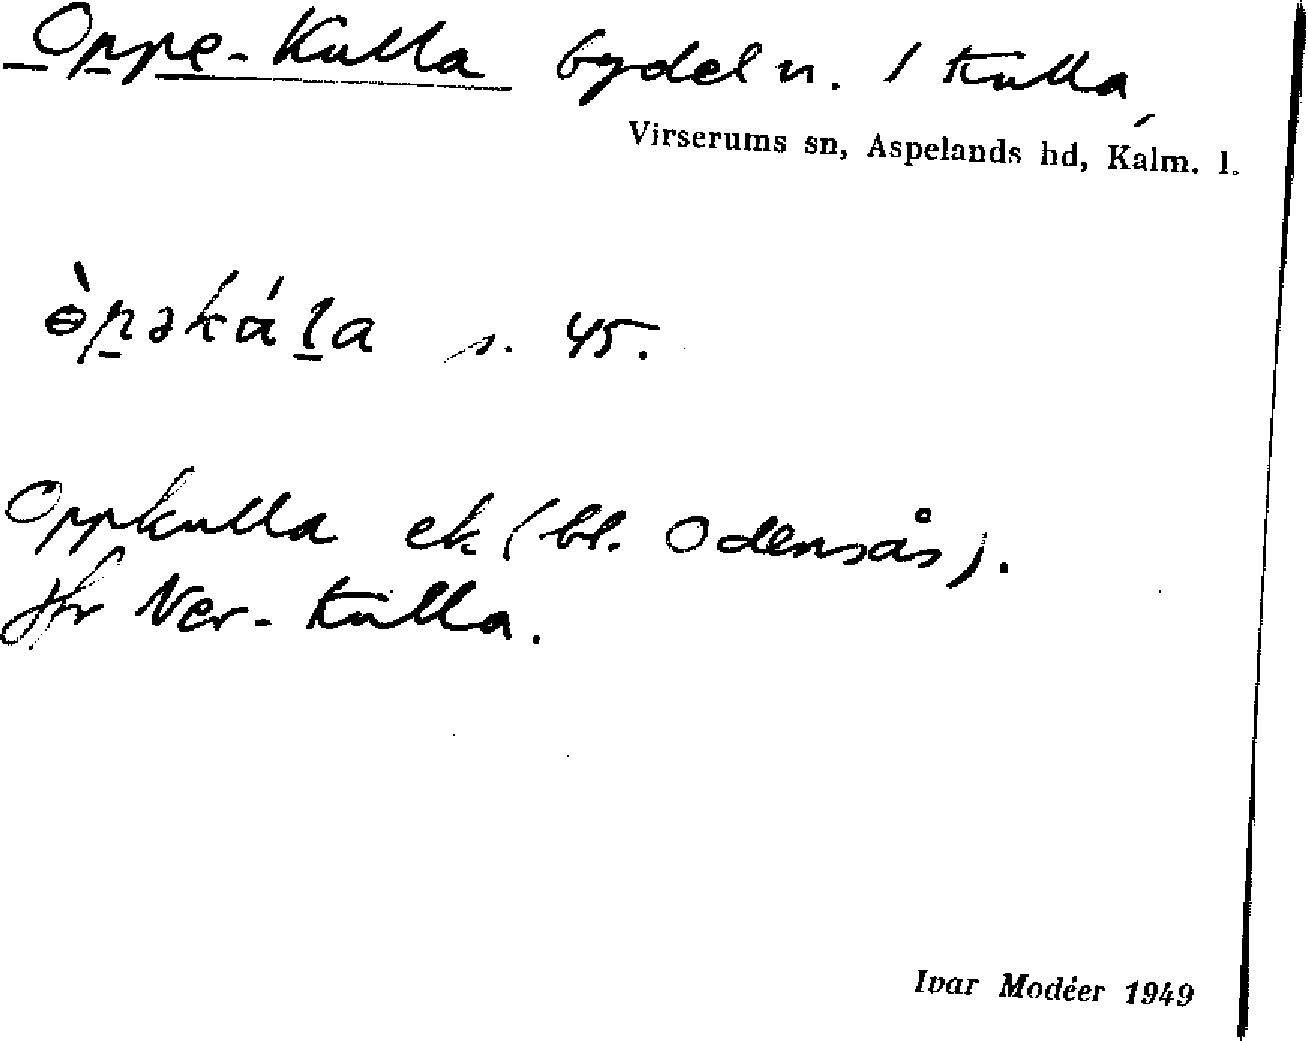 Oppe-Kulla bydel n. i Kulla,
Virserums sn, Aspelands hd, Kalm. l.
ɵ̀p̲əkáḻa s. 45.
Oppkulla ek (bl. Odensås).
Jfr Ner-Kulla.
Ivar Modéer 1949